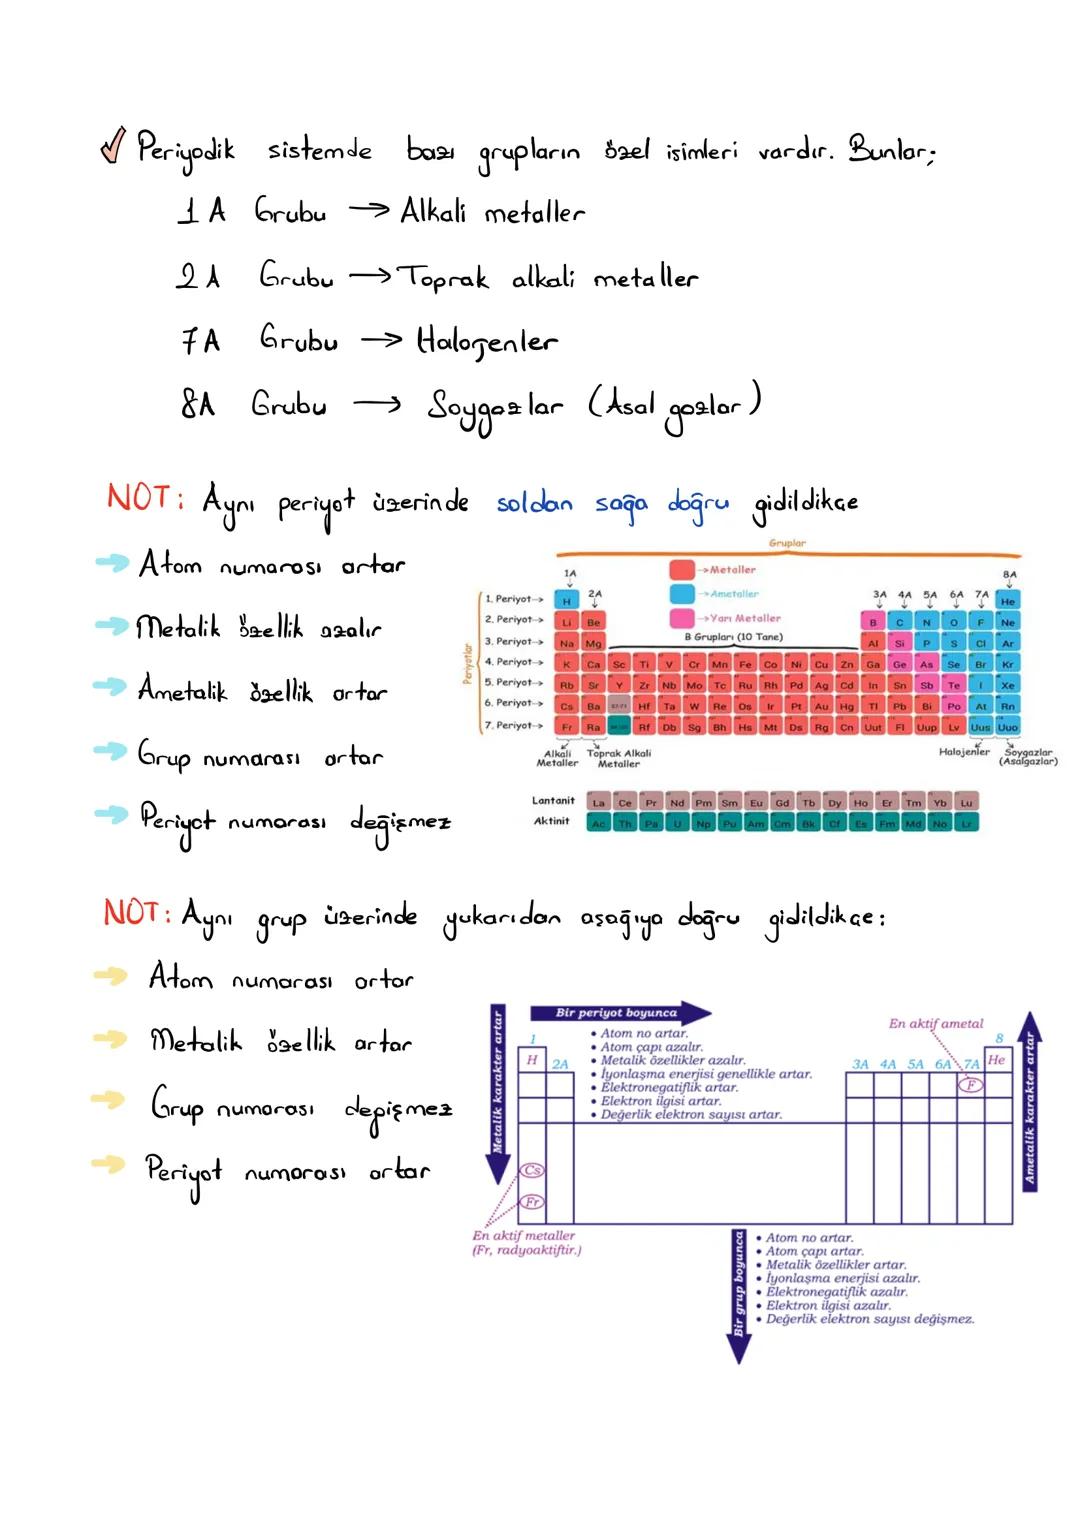 Periyodik sistemde bazı grupların özel isimleri vardır. Bunlar;
1A Grubu → Alkali metaller
2A Grubu → Toprak alkali metaller
7A Grubu → Halojenler
8A Grubu → Soygazlar (Asal gazlar)
NOT: Aynı periyot üzerinde soldan sağa doğru gidildikçe
→ Atom numarası artar
→ Metalik özellik azalır
→ Ametalik özellik artar
→ Grup numarası artar
→ Periyot numarası değişmez
Gruplar
1A → Metaller 8A
1. Periyot → H 2A → Ametaller 3A 4A 5A 6A 7A He
2. Periyot → Li Be → Yarı Metaller B C N O F Ne
3. Periyot → Na Mg B Grupları (10 Tane) Al Si P S Cl Ar
4. Periyot → K Ca Sc Ti V Cr Mn Fe Co Ni Cu Zn Ga Ge As Se Br Kr
5. Periyot → Rb Sr Y Zr Nb Mo Tc Ru Rh Pd Ag Cd In Sn Sb Te I Xe
6. Periyot → Cs Ba 57-71 Hf Ta W Re Os Ir Pt Au Hg Tl Pb Bi Po At Rn
7. Periyot → Fr Ra Rf Db Sg Bh Hs Mt Ds Rg Cn Uut Fl Uup Lv Uus Uuo
Periyotlar
Alkali Metaller
Toprak Alkali Metaller
Halojenler
Soygazlar (Asalgazlar)
Lantanit La Ce Pr Nd Pm Sm Eu Gd Tb Dy Ho Er Tm Yb Lu
Aktinit Ac Th Pa U Np Pu Am Cm Bk Cf Es Fm Md No Lr
NOT: Aynı grup üzerinde yukarıdan aşağıya doğru gidildikçe:
→ Atom numarası artar
→ Metalik özellik artar
→ Grup numarası depişmez
→ Periyot numarası artar
Metalik karakter artar
Bir periyot boyunca
• Atom no artar.
• Atom çapı azalır.
• Metalik özellikler azalır.
• İyonlaşma enerjisi genellikle artar.
• Elektronegatiflik artar.
• Elektron ilgisi artar.
• Değerlik elektron sayısı artar.
En aktif ametal
1 8
H 2A 3A 4A 5A 6A 7A He
F
Cs
Fr
Ametalik karakter artar
En aktif metaller
(Fr, radyoaktiftir.)
Bir grup boyunca
• Atom no artar.
• Atom çapı artar.
• Metalik özellikler artar.
• İyonlaşma enerjisi azalır.
• Elektronegatiflik azalır.
• Elektron ilgisi azalır.
• Değerlik elektron sayısı değişmez.